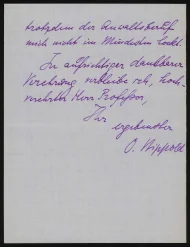 trotzdem der Anwaltsberuf
mich nicht im Mindesten lockt.
In aufrichtiger dankbarer
Verehrung verbleibe ich, hoch-
verehrter Herr Professor,
Ihr
ergebenster
O. Nippold